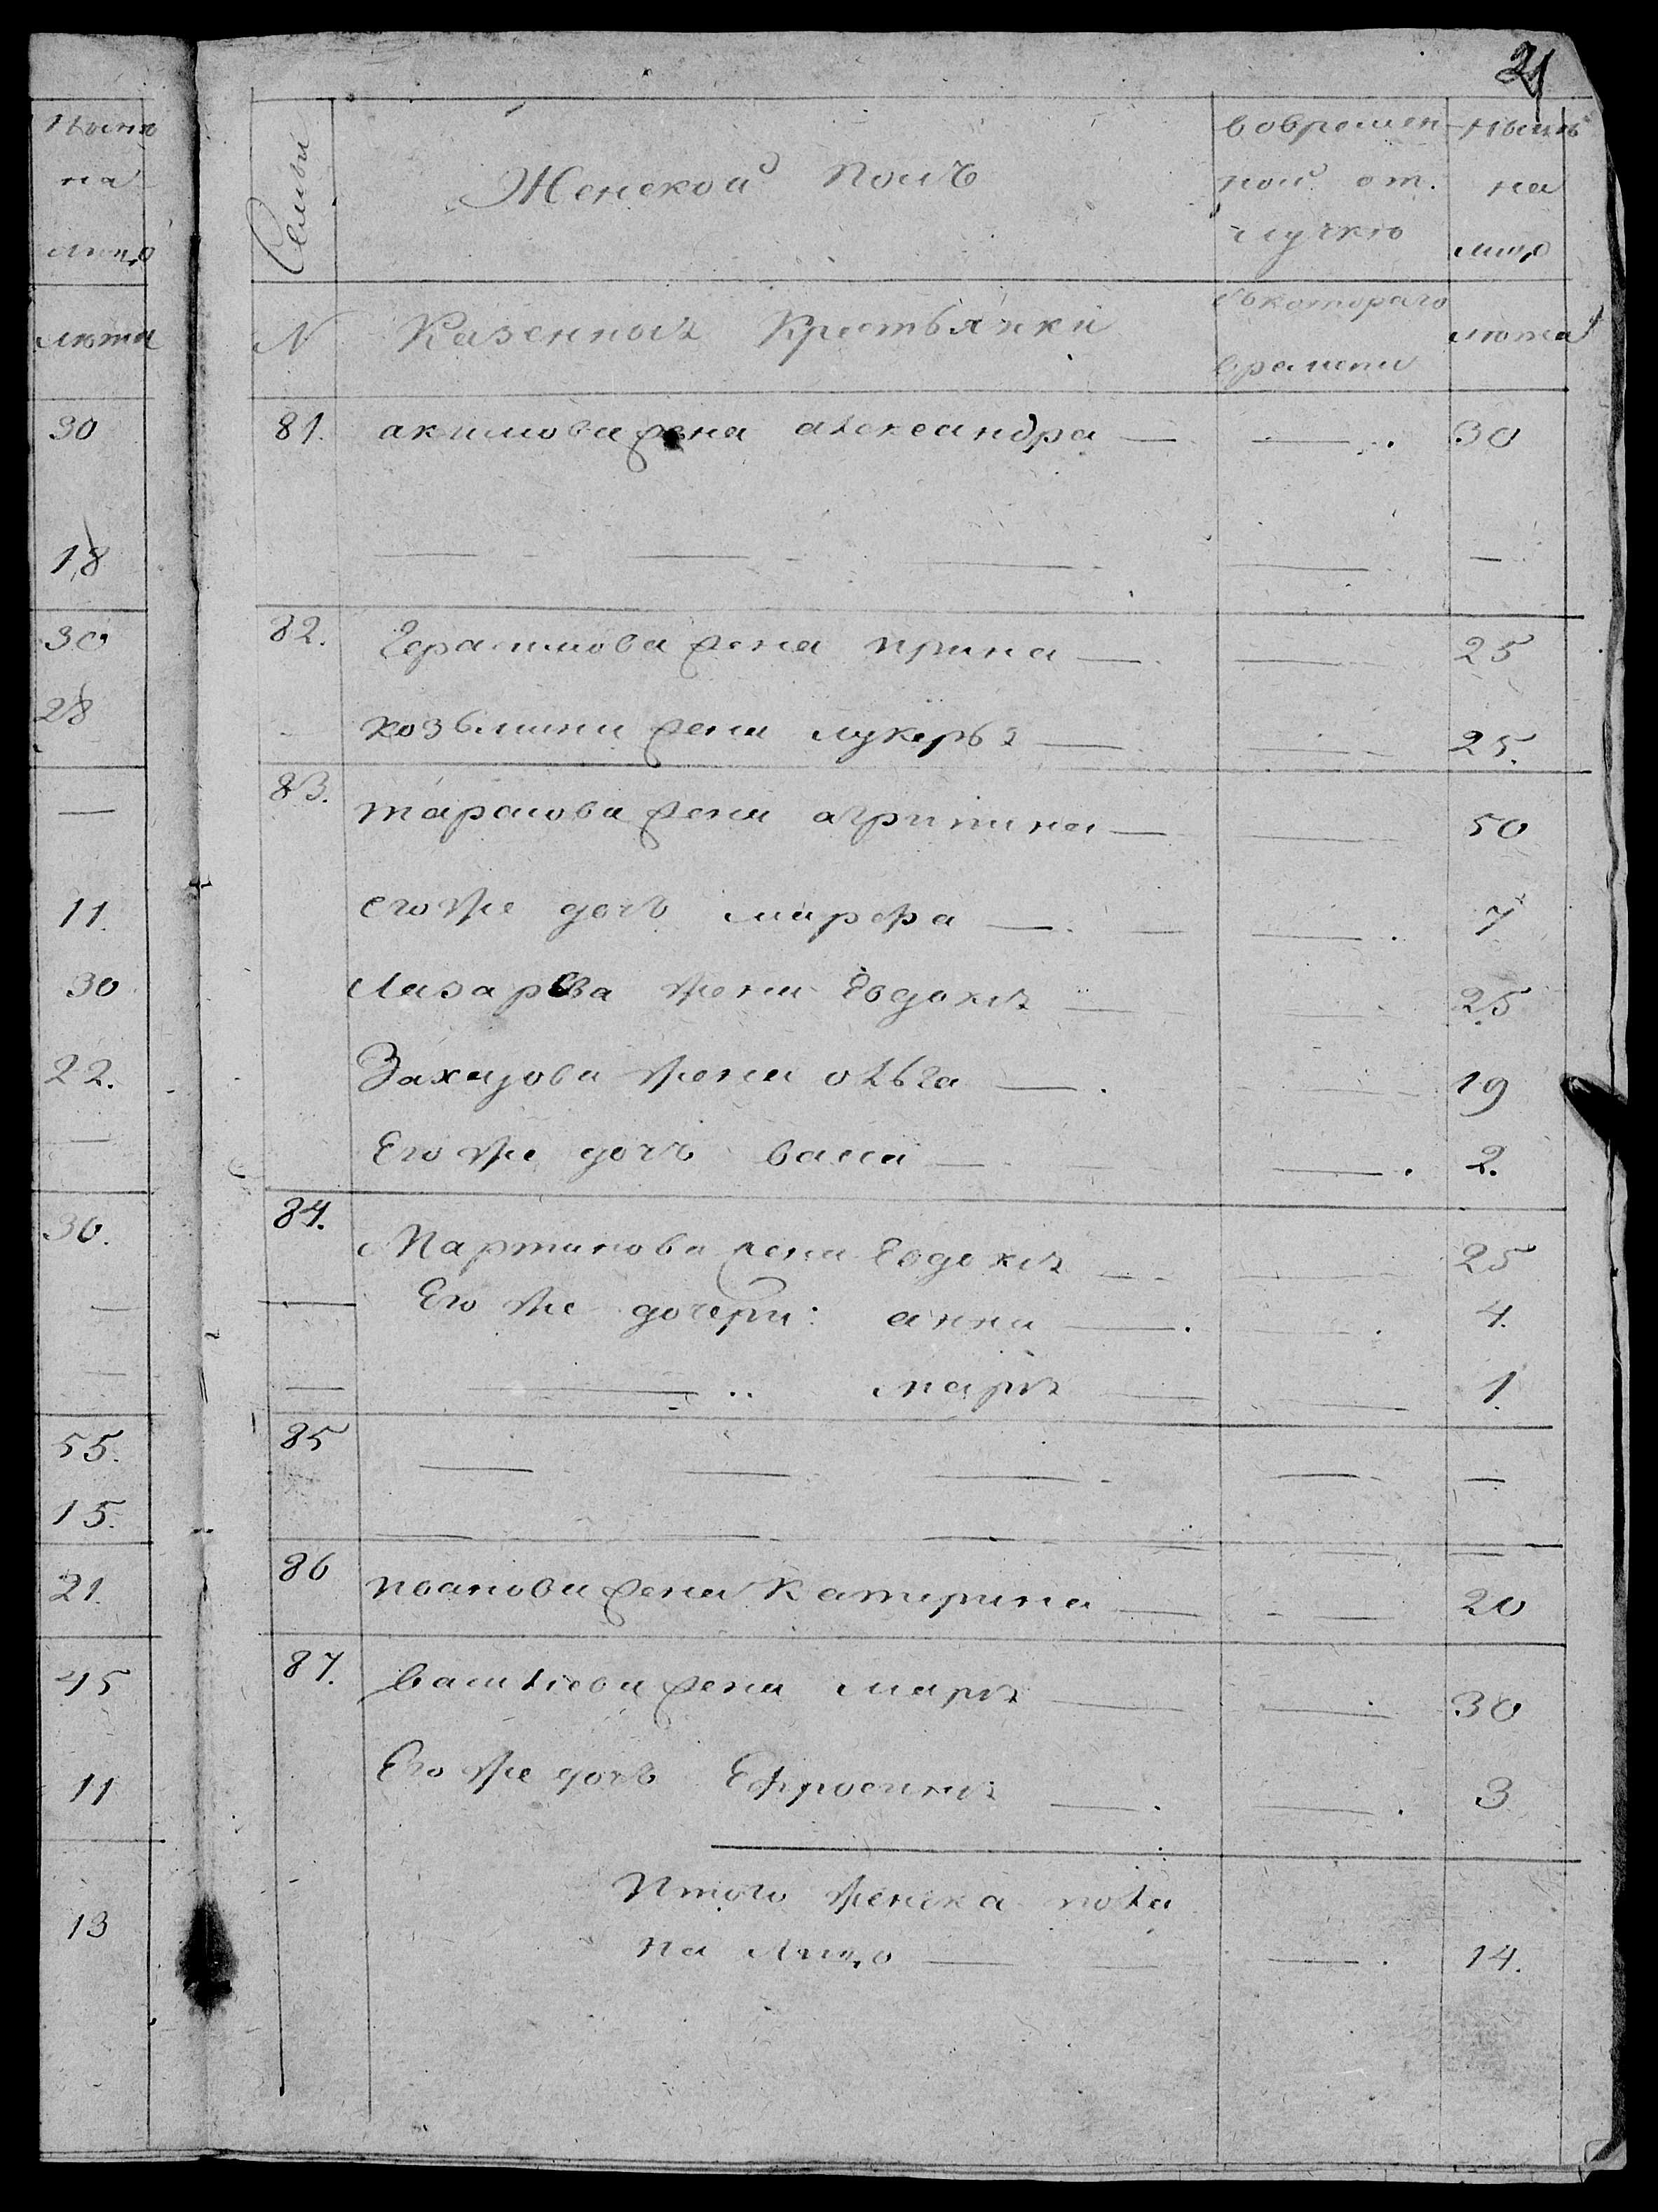 21
нынѣ
на
лицо
лѣта
30
18
30
28
—
11.
30
22.
—
30.
—
—
55.
15.
21.
45
11
13
Семьи
Женской полъ
вовремен
ной от.
лучкѣ
нынѣ
на
лицо
N Казенныя Крестьянки
съкотораго
времени
лѣта
81. акимова жена александра — — 30
— — — — —
82. Герасимова жена ирина — — 25
козьмина жена лукерья — — 25.
83. тарасова жена агрипина — — 50
егоже дочь марфа — — 7
Лазарева жена Евдокия — — 25
Захарова жена олЬга — — 19
Его же дочь васса — — 2.
84. Мартинова жена Евдокия — — 25
Его же дочери: анна — — 4.
— марья — — 1.
85 — — — — —
— — — — —
86 иванова жена Катерина — — 20
87. василиева жена марья — — 30
Его же дочь Ефросиния — — 3
Итого женска пола
на лицо — — 14.